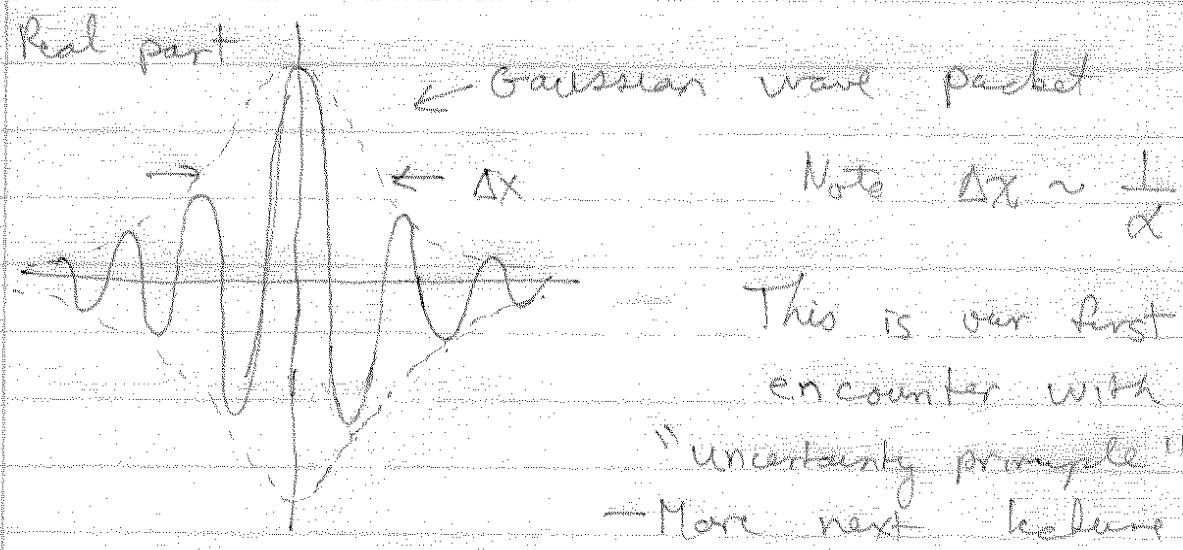 Real part
← Gaussian wave packet
→ ← Δx
Note Δx ~ 1/α
This is our first
encounter with
"uncertainty principle"
— More next